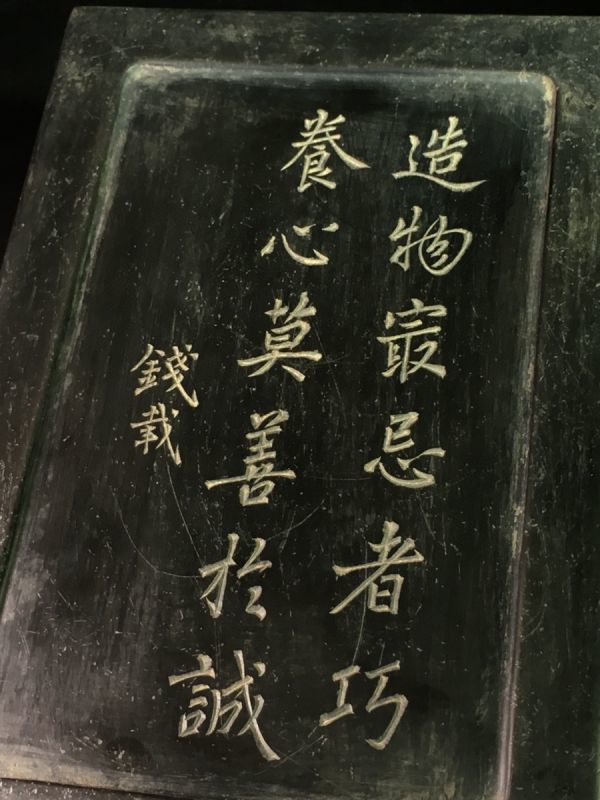 造物㝡忌者巧
養心莫善於誠
錢載